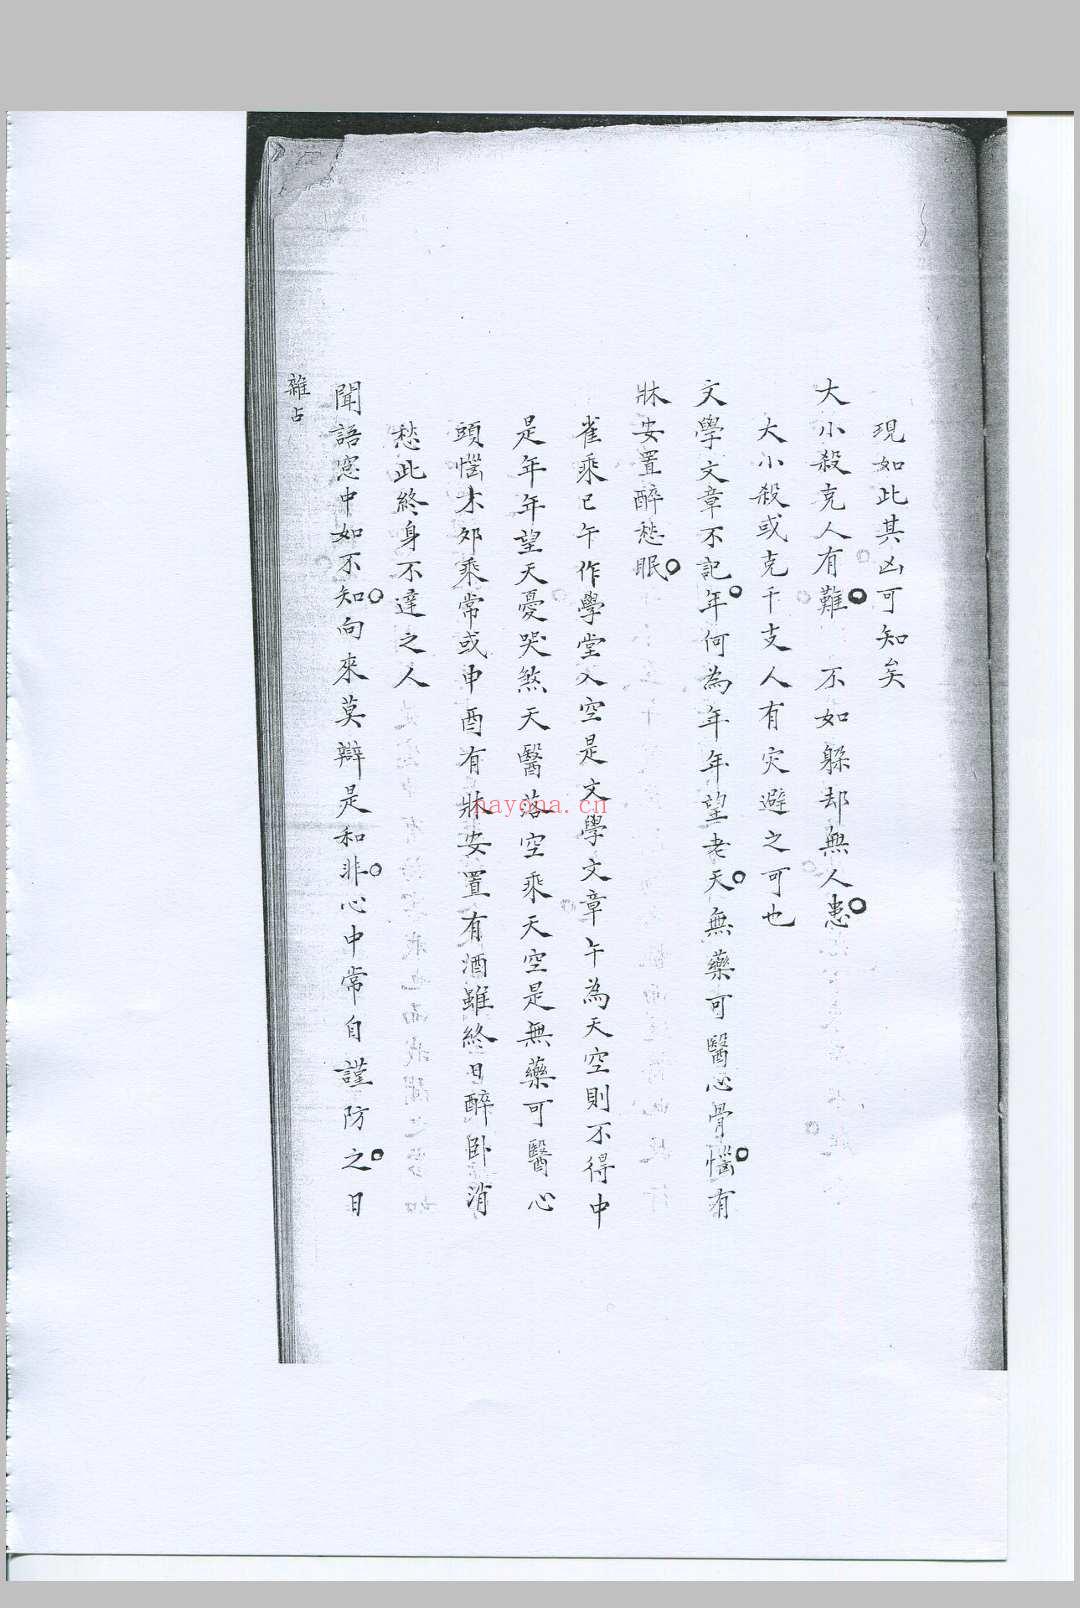 現如此其凶可知矣
大小殺克人有難○不如躲却無人患○
大小殺或克干支人有灾避之可也
文學文章不記年○何為年年望老天○無藥可醫心骨惱○有
牀安置醉愁眠○
雀乘巳午作學堂入空是文學文章午為天空則不得中
是年年望天憂哭煞天醫落空乘天空是無藥可醫心
頭惱木夘乘常或申酉有牀安置有酒雖終日醉卧消
愁此終身不達之人
聞語窓中如不知○向來莫辯是和非○心中常自謹防之○日
雜占
nayona.cn